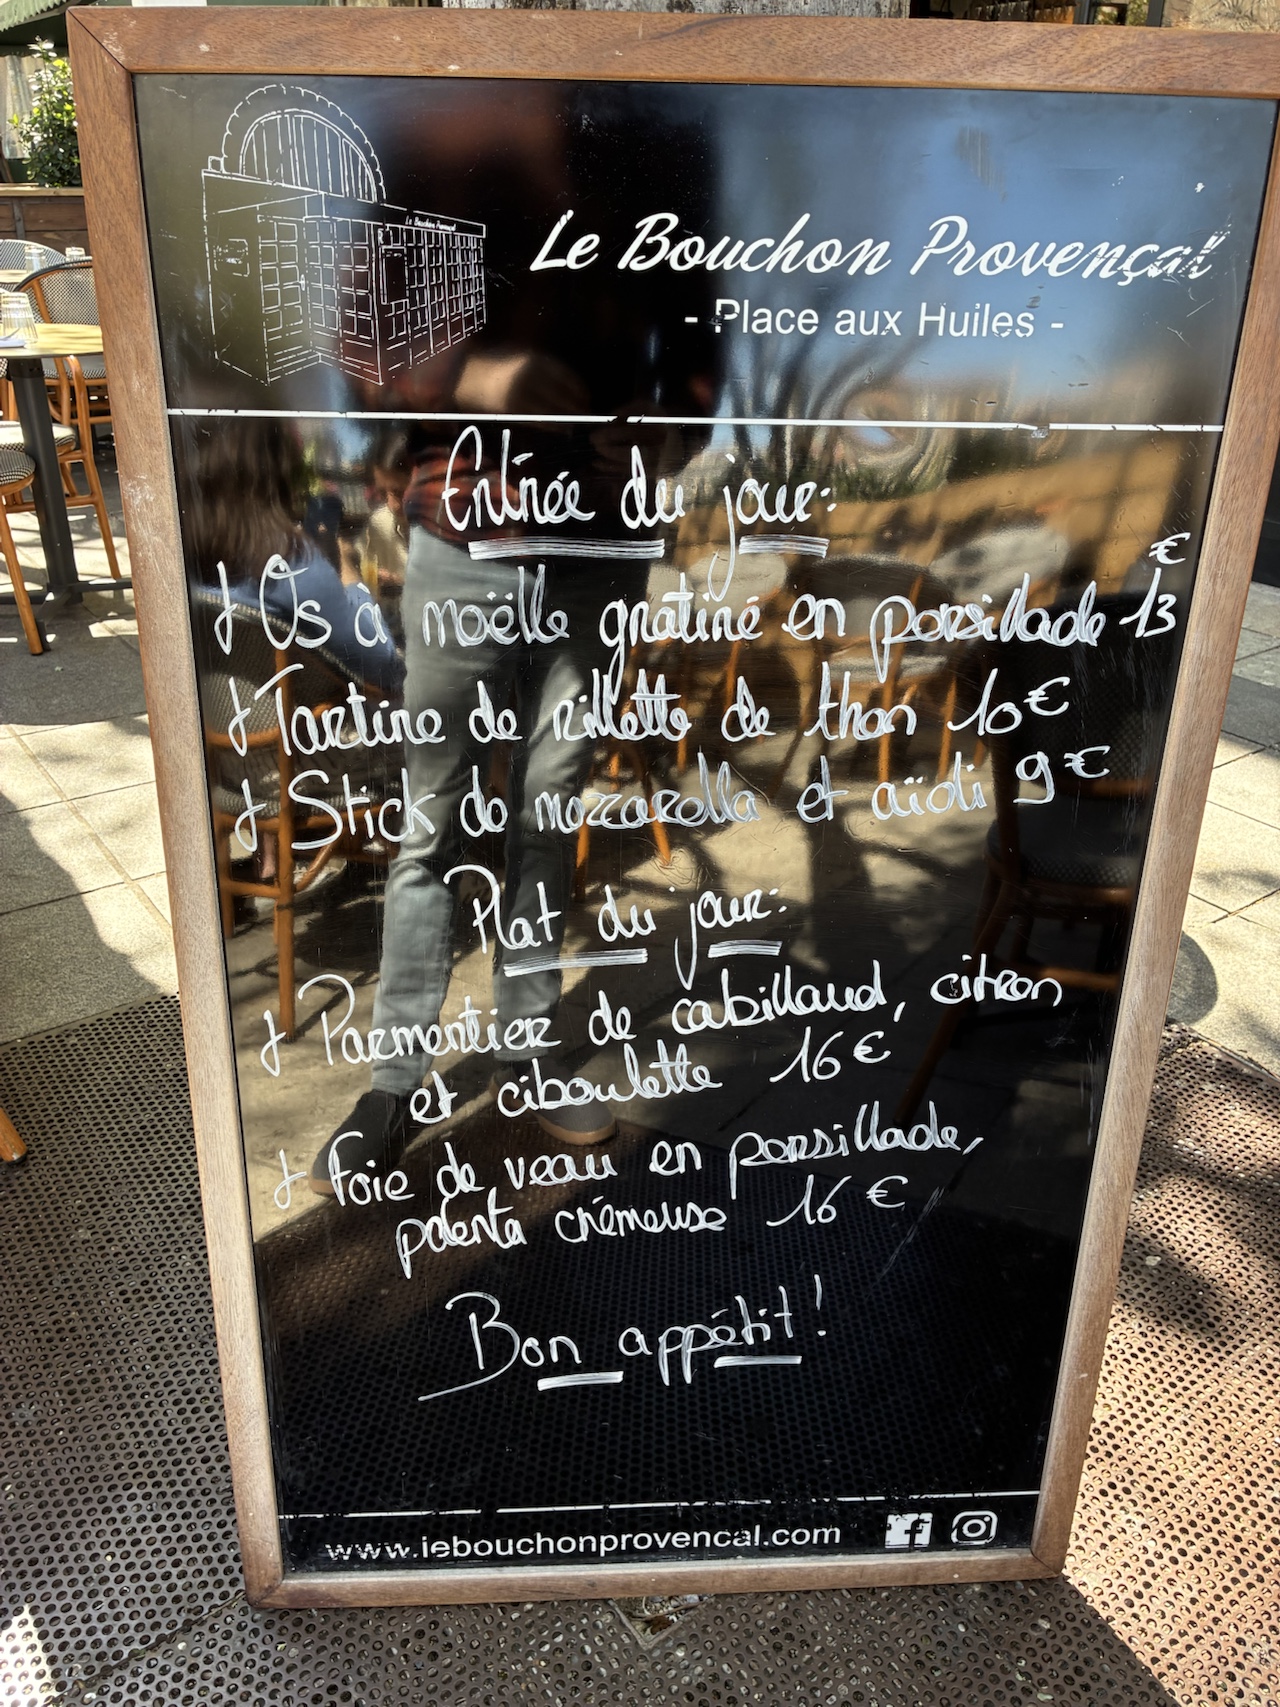 Le Bouchon Provençal
Le Bouchon Provençal
- Place aux Huiles -
Entrée du jour:
+ Os à moëlle gratiné en persillade 13 €
+ Tartine de rillette de thon 10€
+ Stick de mozzarella et aïoli 9€
Plat du jour:
+ Parmentier de cabillaud, citron
et ciboulette 16€
+ Foie de veau en persillade,
polenta crémeuse 16€
Bon appétit!
www.lebouchonprovencal.com